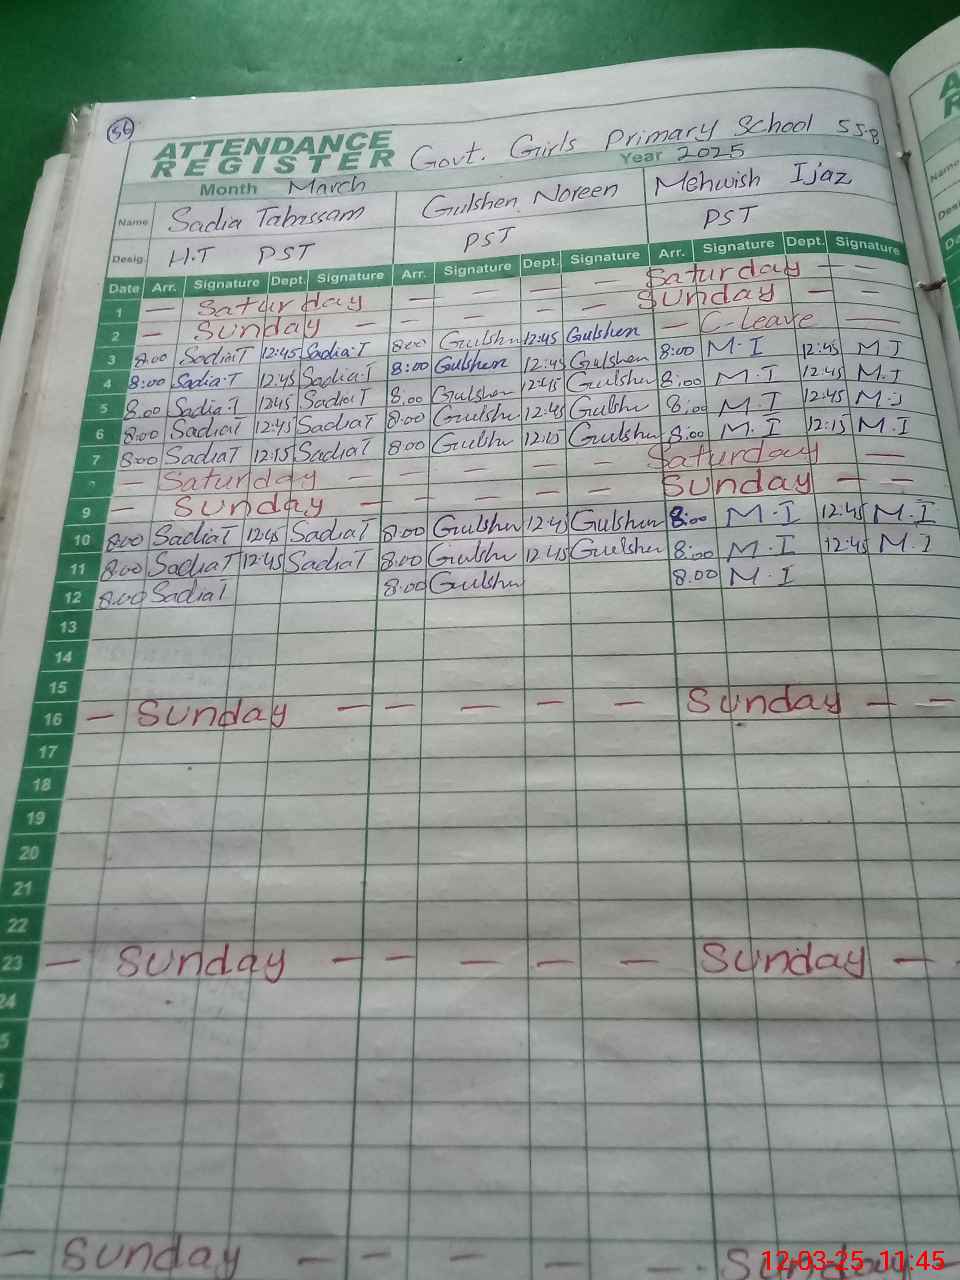 56
ATTENDANCE
REGISTER Govt. Girls Primary School 55-B
Month March Year 2025
Name Sadia Tabassam Gulshen Noreen Mehwish Ijaz
Desig. H.T PST PST PST
Date Arr. Signature Dept. Signature Arr. Signature Dept. Signature Arr. Signature Dept. Signature
1 — Saturday — — — — Saturday — —
2 — Sunday — — — — — Sunday — —
3 8:00 Sadia.T 12:45 Sadia.T 8:00 Gulshn 12:45 Gulshen — C-leave —
4 8:00 Sadia.T 12:45 Sadia.T 8:00 Gulshen 12:45 Gulshen 8:00 M.I 12:45 M.I
5 8:00 Sadia.T 12:45 SadiaT 8:00 Gulshen 12:45 Gulshen 8:00 M.I 12:45 M.I
6 8:00 SadiaT 12:45 SadiaT 8:00 Gulshn 12:45 Gulshn 8:00 M.I 12:45 M.I
7 8:00 SadiaT 12:15 SadiaT 8:00 Gulshn 12:15 Gulshn 8:00 M.I 12:15 M.I
— Saturday — — — — — Saturday —
9 — Sunday — — — — Sunday — —
10 8:00 SadiaT 12:45 SadiaT 8:00 Gulshn 12:45 Gulshen 8:00 M.I 12:45 M.I
11 8:00 SadiaT 12:45 SadiaT 8:00 Gulshn 12:45 Gulshen 8:00 M.I 12:45 M.I
12 8:00 SadiaT 8:00 Gulshn 8.00 M.I
13
14
15
16 — Sunday — — — — — Sunday — —
17
18
19
20
21
22
23 — Sunday — — — — — Sunday — -
24
5
— Sunday — — — — — Sunday
12-03-25 11:45